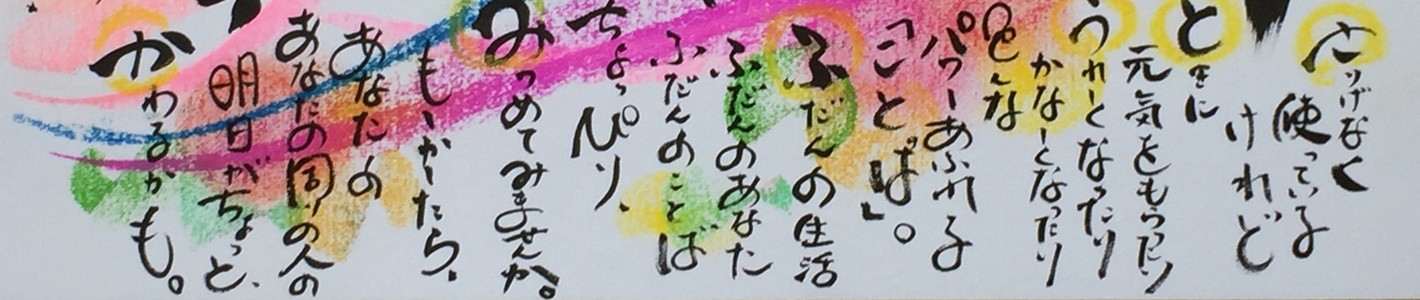 さりげなく
使っている
けれど
ときに
元気をもらったり
うれしくなったり
かなしくなったり
パワーあふれる
「ことば」。
ふだんの生活
ふだんのあなた
ふだんのことば
ちょっぴり、
みつめてみませんか。
もしかしたら、
あなたの
あなたの周りの人の
明日がちょっと、
かわるかも。